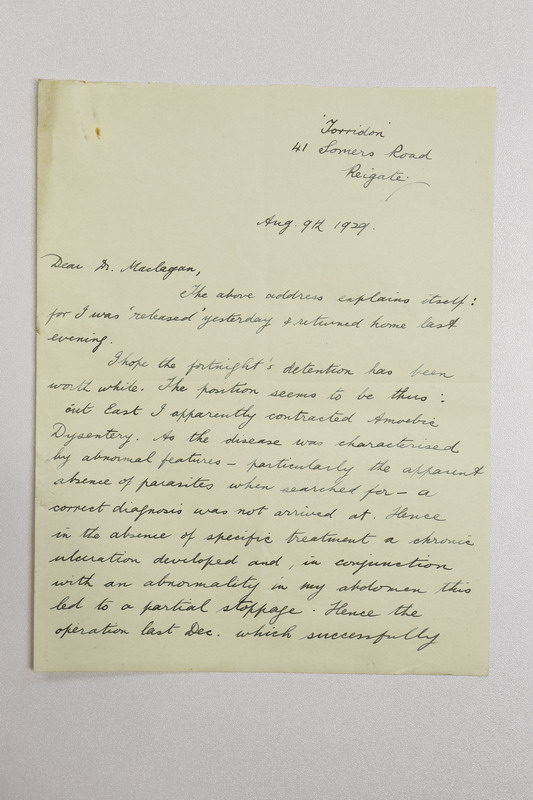 'Torridon'
41 Somers Road
Reigate.
Aug. 9th 1929.
Dear Dr. Maclagan,
The above address explains itself:
for I was 'released' yesterday & returned home last
evening.
I hope the fortnight's detention has been
worth while. The position seems to be thus:
out East I apparently contracted Amoebic
Dysentery. As the disease was characterised
by abnormal features – particularly the apparent
absence of parasites when searched for – a
correct diagnosis was not arrived at. Hence
in the absence of specific treatment a chronic
ulceration developed and, in conjunction
with an abnormality in my abdomen this
led to a partial stoppage. Hence the
operation last Dec. which successfully